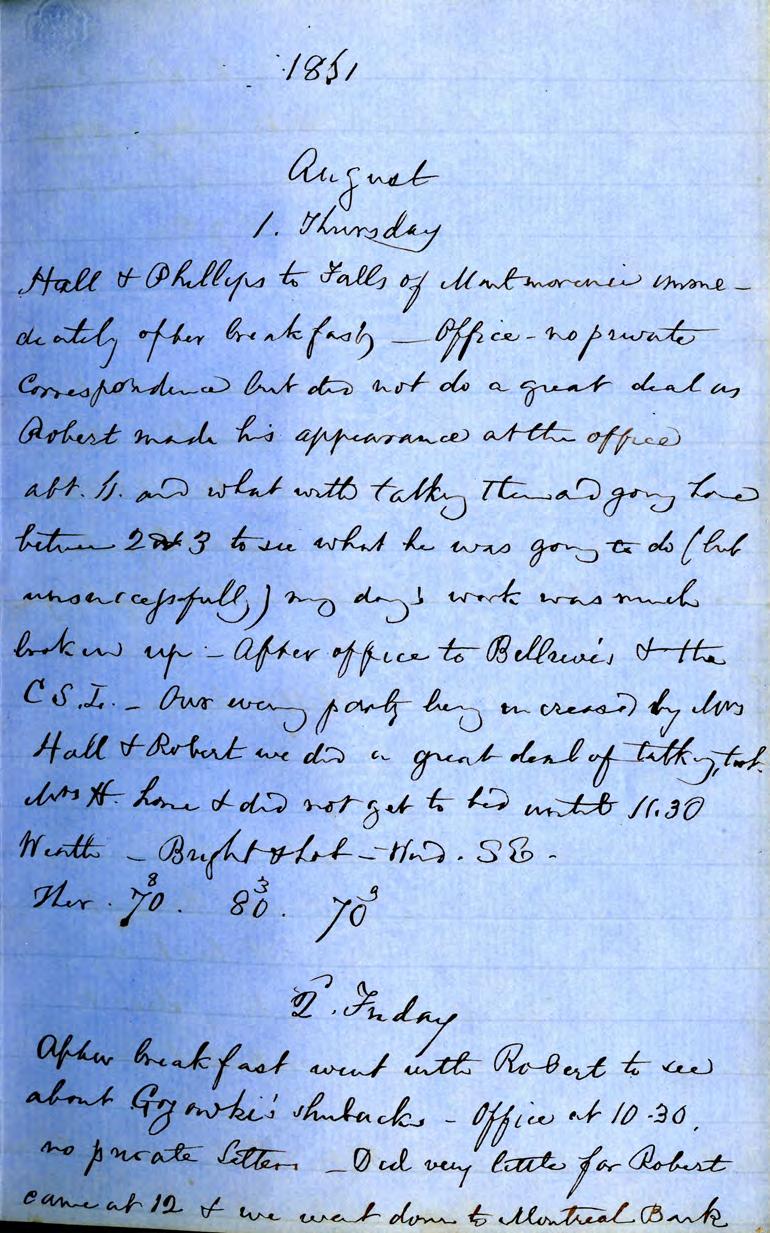 1861
August
1. Thursday
Hall & Phillips to Falls of Montmorencie imme-
diately after breakfast — Office - no private
Correspondence but did not do a great deal as
Robert made his appearance at the office
abt. 11. and what with talking then and going home
between 2 & 3 to see what he was going to do (but
unsuccessfully) my day's work was much
broken up - After office to Bellew's & the
C S.I. - Our evening party being increased by Mrs
Hall & Robert we did a great deal of talking, took
Mrs H. home & did not get to bed until 11.30
Weath - Bright & hot - Wind. SE -
Ther. 70 8. 80 3. 70 9
2. Friday
After breakfast went with Robert to see
about Gzowki's - Office at 10.30.
no private letters - Did very little for Robert
came at 12 & we went down to Montreal Bank